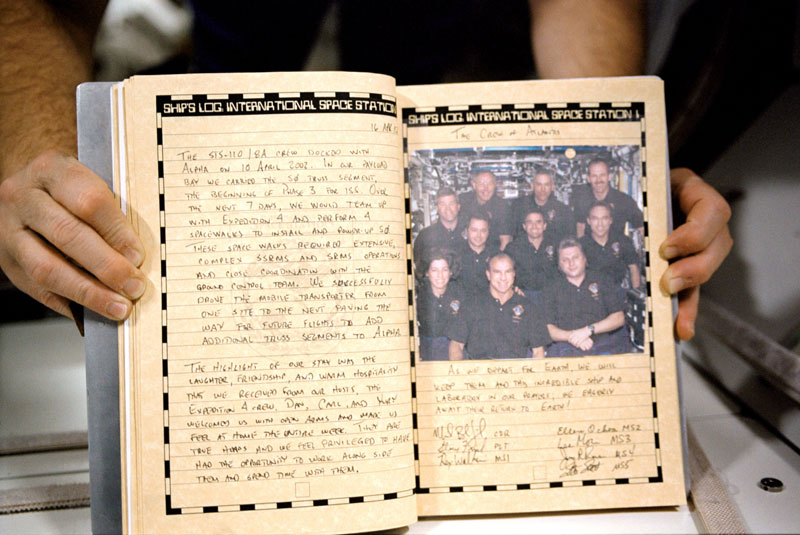 SHIP'S LOG, INTERNATIONAL SPACE STATION
16 APR
THE STS-110/8A CREW DOCKED WITH
ALPHA ON 10 APRIL 2002. IN OUR PAYLOAD
BAY WE CARRIED THE SØ TRUSS SEGMENT,
THE BEGINNING OF PHASE 3 FOR ISS. OVER
THE NEXT 7 DAYS, WE WOULD TEAM UP
WITH EXPEDITION 4 AND PERFORM 4
SPACEWALKS TO INSTALL AND POWER-UP SØ.
THESE SPACE WALKS REQUIRED EXTENSIVE,
COMPLEX SSRMS AND SRMS OPERATIONS
AND CLOSE COORDINATION WITH THE
GROUND CONTROL TEAM. WE SUCCESSFULLY
DROVE THE MOBILE TRANSPORTER FROM
ONE SITE TO THE NEXT PAVING THE
WAY FOR FUTURE FLIGHTS TO ADD
ADDITIONAL TRUSS SEGMENTS TO ALPHA.
THE HIGHLIGHT OF OUR STAY WAS THE
LAUGHTER, FRIENDSHIP, AND WARM HOSPITALITY
THAT WE RECEIVED FROM OUR HOSTS, THE
EXPEDITION 4 CREW, DAN, CARL, AND YURY
WELCOMED US WITH OPEN ARMS AND MADE US
FEEL AT HOME THE ENTIRE WEEK. THEY ARE
TRUE HEROS AND WE FEEL PRIVILEGED TO HAVE
HAD THE OPPORTUNITY TO WORK ALONG SIDE
THEM AND SPEND TIME WITH THEM.
SHIP'S LOG, INTERNATIONAL SPACE STATION
THE CREW OF ATLANTIS
AS WE DEPART FOR EARTH, WE WILL
KEEP THEM AND THIS INCREDIBLE SHIP AND
LABORATORY IN OUR PRAYERS. WE EAGERLY
AWAIT THEIR RETURN TO EARTH!
CDR Ellen Ochoa MS2
PLT Lee Morin MS3
Rex Walheim MS1 MS4
MS5